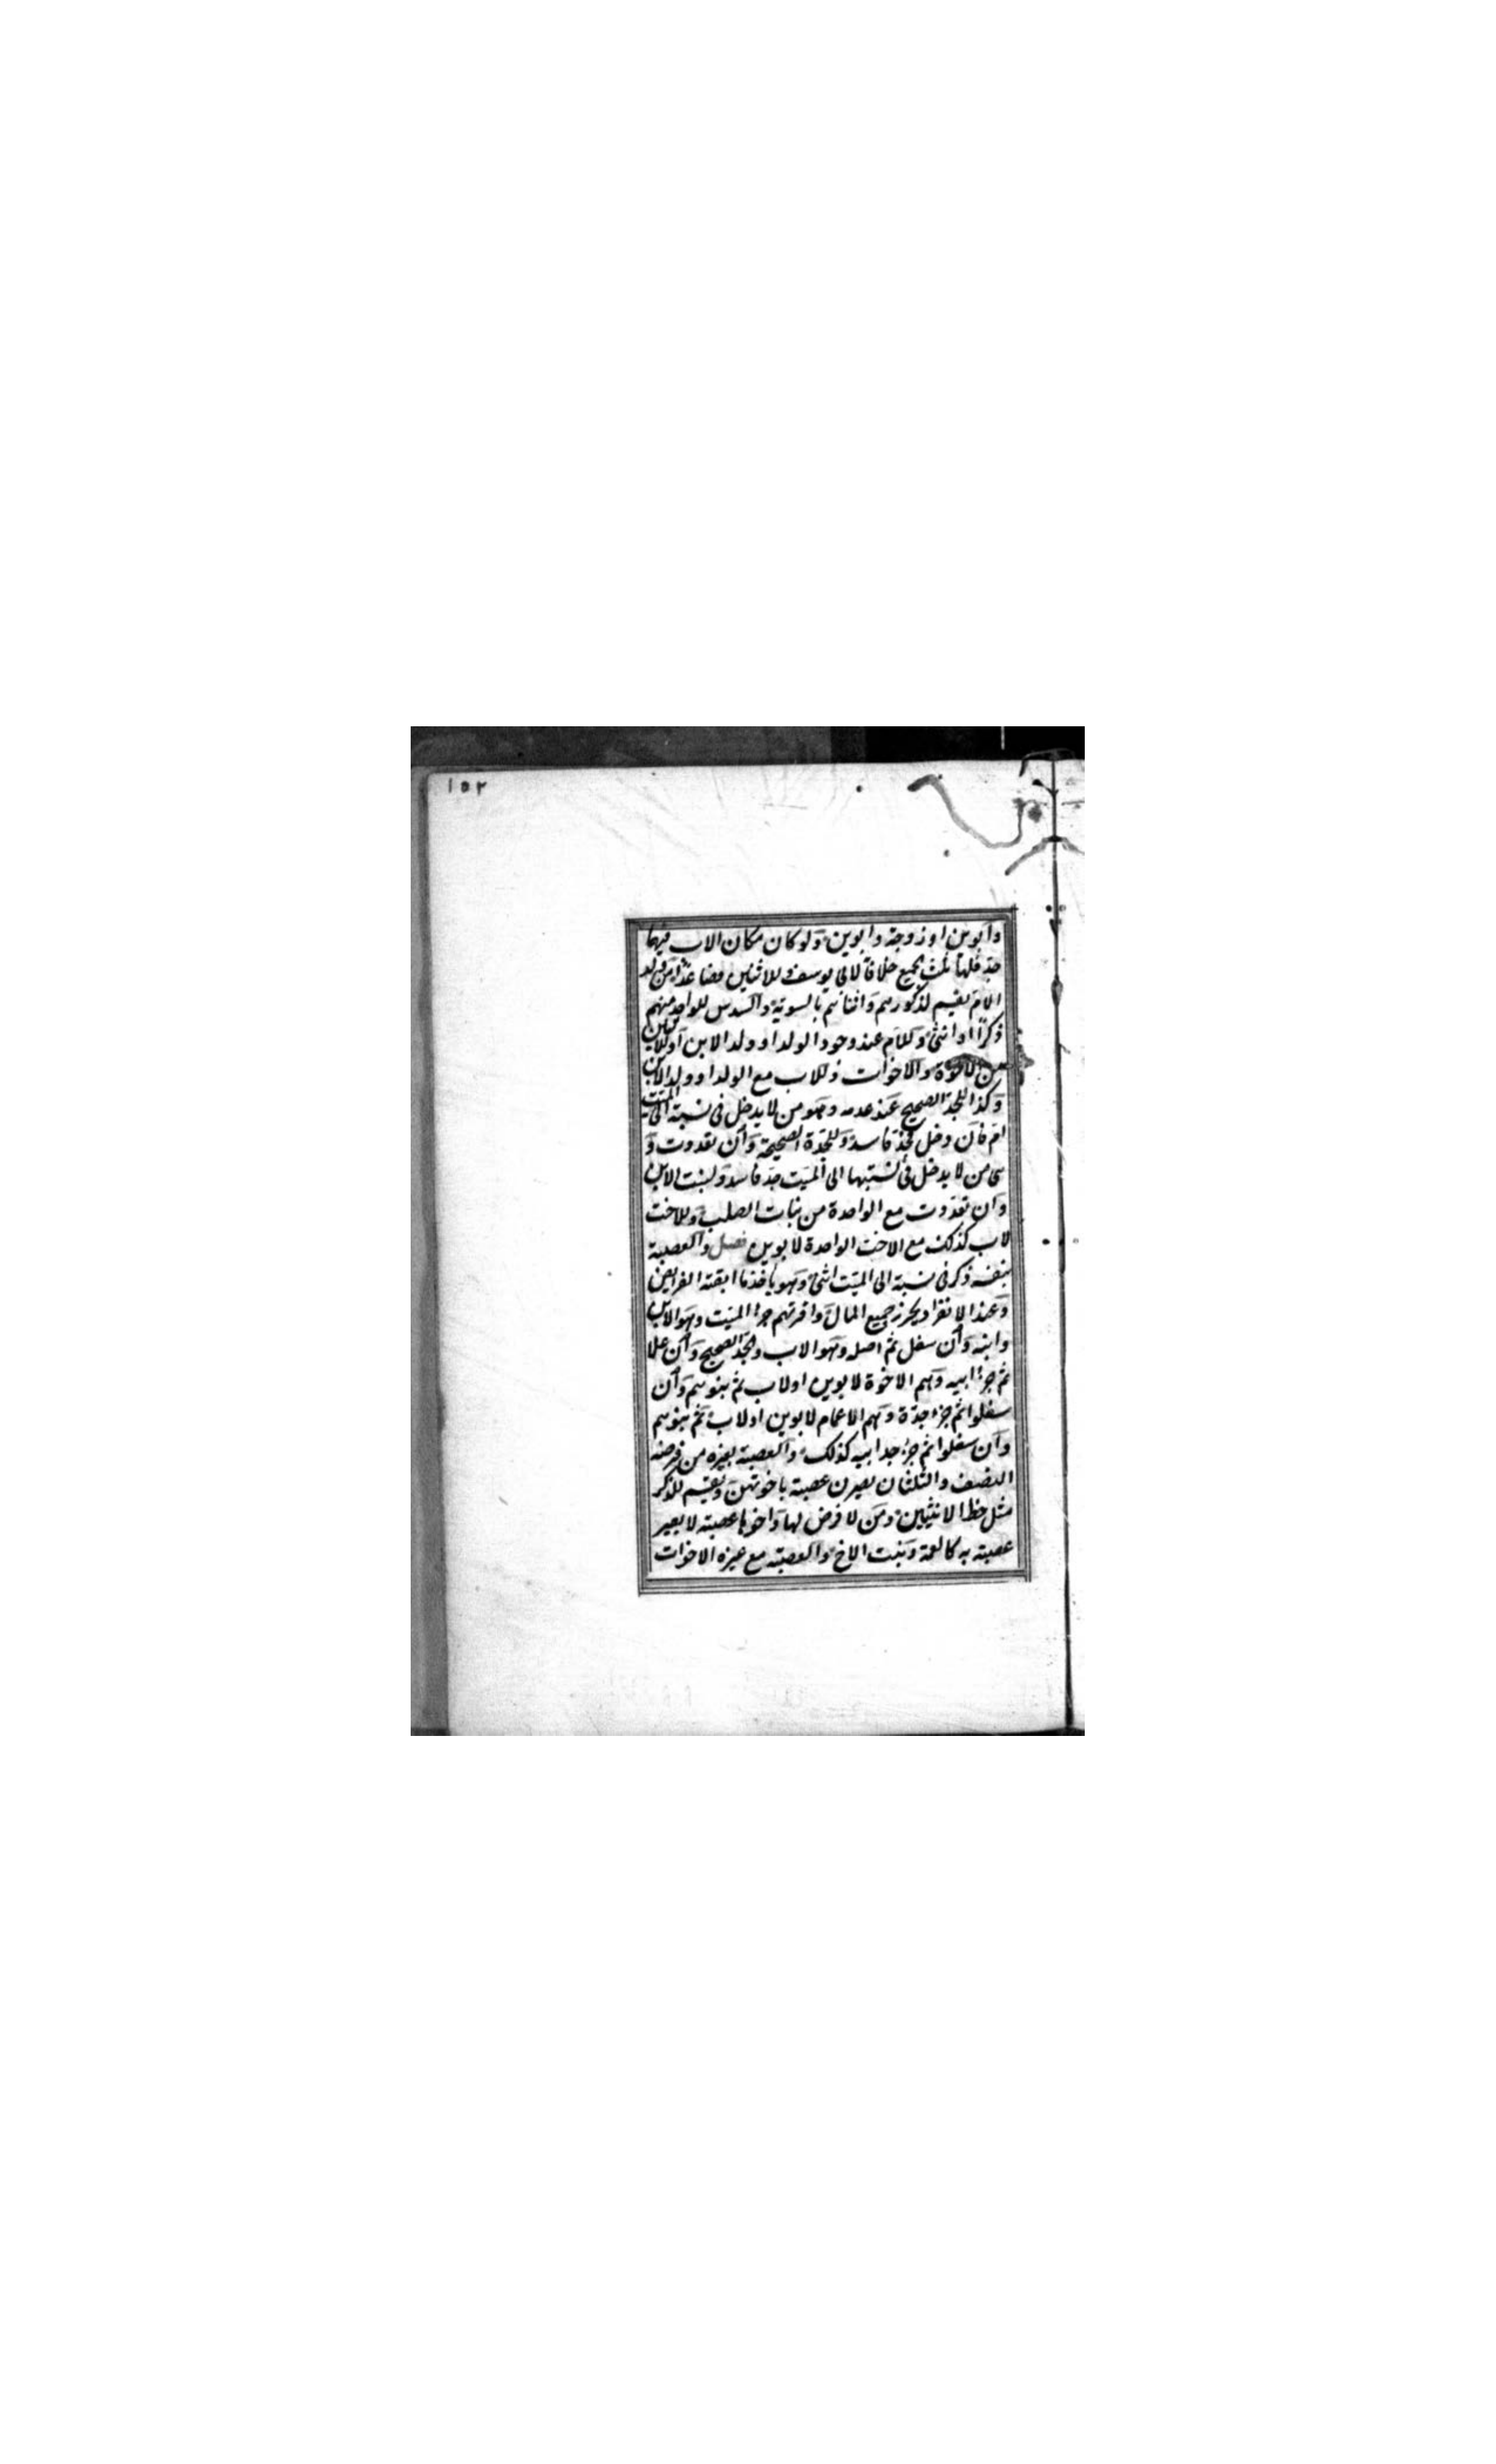 ١٥٢
وابوين او زوجة وابوين ولو كان مكان الاب فيهما
جد فلها ثلث الجميع خلافا لابي يوسف وللاثنين فصاعدا من ولد
الام يقسم لذكورهم واناثهم بالسوية والسدس للواحد منهم
ذكرا او انثى وللام عند وجود الولد او ولد الابن او الاثنين
من الاخوة والاخوات وللاب مع الولد او ولد الابن
وكذا للجد الصحيح عند عدمه وهو من لا يدخل في نسبته الى الميت
ام فان دخل فجد فاسد وللجدة الصحيحة وان تعددت و
هى من لا يدخل في نسبتها الى الميت جد فاسد ولبنت الابن
وان تعددت مع الواحدة من بنات الصلب وللاخت
لاب كذلك مع الاخت الواحدة لابوين فصل والعصبة
بنفسه ذكر في نسبته الى الميت انثى وهو ياخذ ما ابقته الفرايض
وعند الانفراد يحرز جميع المال واقربهم جزء الميت وهو الابن
وابنه وان سفل ثم اصله وهو الاب والجد الصحيح وان علا
ثم جزء ابيه وهم الاخوة لابوين او لاب ثم بنوهم وان
سفلوا ثم جزء جده وهم الاعمام لابوين او لاب ثم بنوهم
وان سفلوا ثم جزء جد ابيه كذلك والعصبة بغيره من فرضه
النصف والثلثان يصرن عصبة باخوتهن ويقسم للذكر
مثل حظ الانثيين ومن لا فرض لها واخوها عصبة لا يصير
عصبة به كالعمة وبنت الاخ والعصبة مع غيره الاخوات